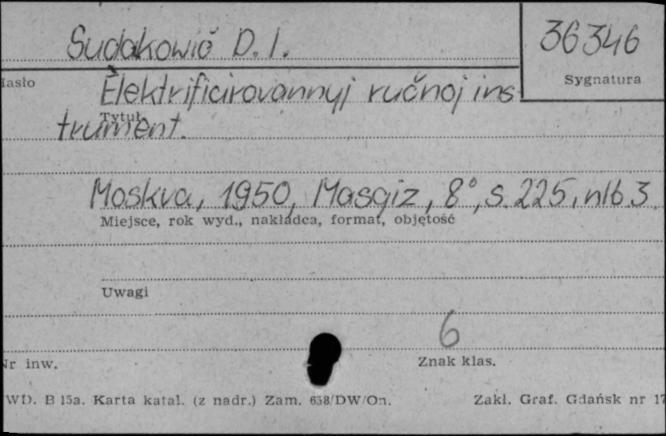 Sudakowič D. I.
36346
Sygnatura
Hasło
Élektrificirovannyj ručnoj ins
Tytuł
trument.
Moskva, 1950, Masgiz, 8°, s. 225, nlb 3
Miejsce, rok wyd., nakładca, format, objętość
Uwagi
6
Nr inw.
Znak klas.
WD. B 15a. Karta katal. (z nadr.) Zam. 638/DW/On.
Zakl. Graf. Gdańsk nr 17